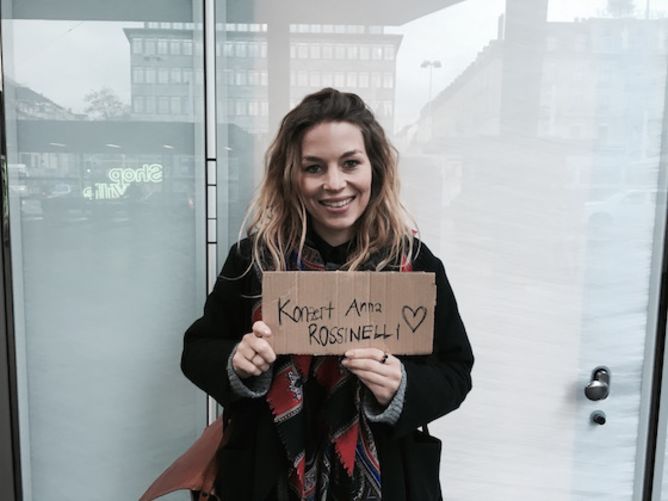 Shop
Ville
Konzert Anna
ROSSINELLI